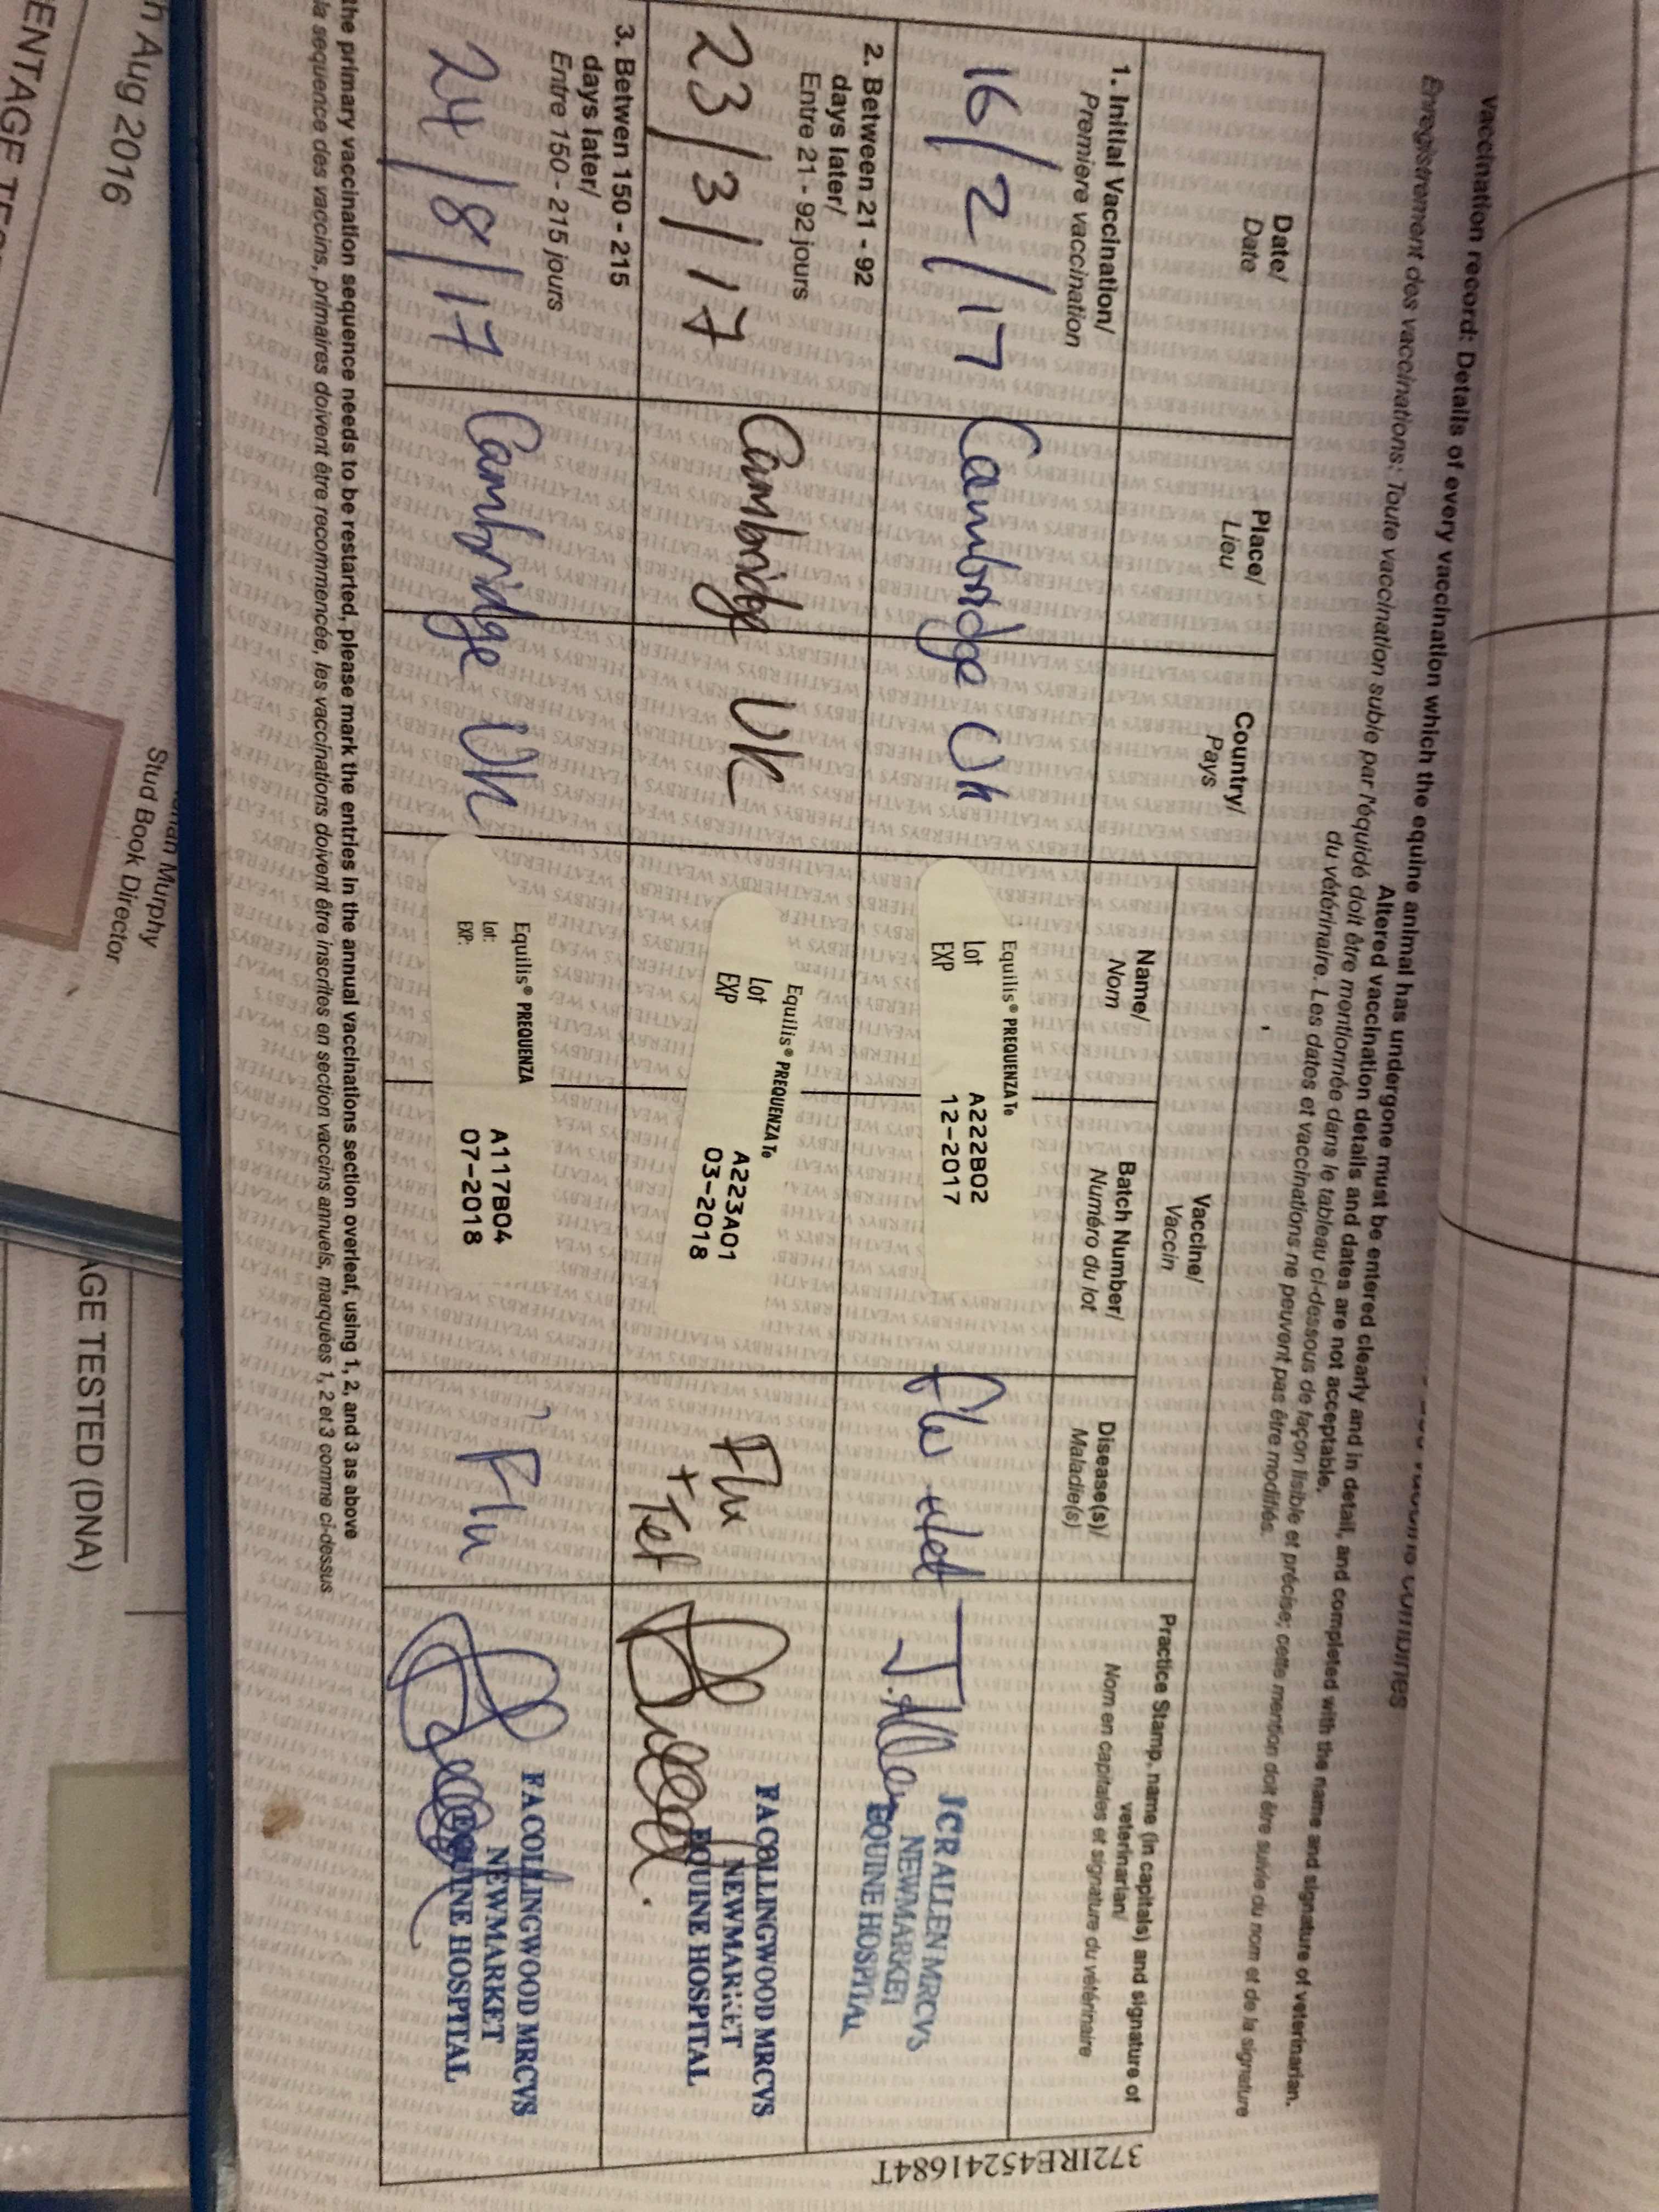 Vaccination record: Details of every vaccination which the equine animal has undergone must be entered clearly and in detail, and completed with the name and signature of veterinarian.
Altered vaccination details and dates are not acceptable.
Enregistrement des vaccinations: Toute vaccination subie par l'équidé doit être mentionnée dans le tableau ci-dessous de façon lisible et précise; cette mention doit être suivie du nom et de la signature
du vétérinaire. Les dates et vaccinations ne peuvent pas être modifiés.
Date/
Date
Place/
Lieu
Country/
Pays
Vaccine/
Vaccin
Name/
Nom
Batch Number/
Numéro du lot
Disease(s)/
Maladie(s)
Practice Stamp, name (in capitals) and signature of
veterinarian/
Nom en capitales et signature du vétérinaire
1. Initial Vaccination/
Premiere vaccination
16/2/17
Cambridge
Uk
Equilis® PREQUENZA Te
Lot A222B02
EXP 12-2017
Flu + tet
J. Allen
JCR ALLEN MRCVS
NEWMARKET
EQUINE HOSPITAL
2. Between 21 - 92
days later/
Entre 21 - 92 jours
23/3/17
Cambridge
UK
Equilis® PREQUENZA Te
Lot A223A01
EXP 03-2018
Flu
+ Tet
FA COLLINGWOOD MRCVS
NEWMARKET
EQUINE HOSPITAL
3. Between 150 - 215
days later/
Entre 150 - 215 jours
24/8/17
Cambridge
Uk
Equilis® PREQUENZA
Lot: A117B04
EXP: 07-2018
Flu
FA COLLINGWOOD MRCVS
NEWMARKET
EQUINE HOSPITAL
the primary vaccination sequence needs to be restarted, please mark the entries in the annual vaccinations section overleaf, using 1, 2, and 3 as above
la sequence des vaccins, primaires doivent être recommencée, les vaccinations doivent être inscrites en section vaccins annuels, marquées 1, 2 et 3 comme ci-dessus
372IRE45241684T
Aug 2016
Murphy
Stud Book Director
AGE TESTED (DNA)